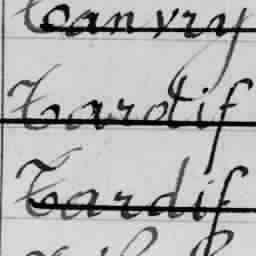 Tanvry
Tardif
Tardif